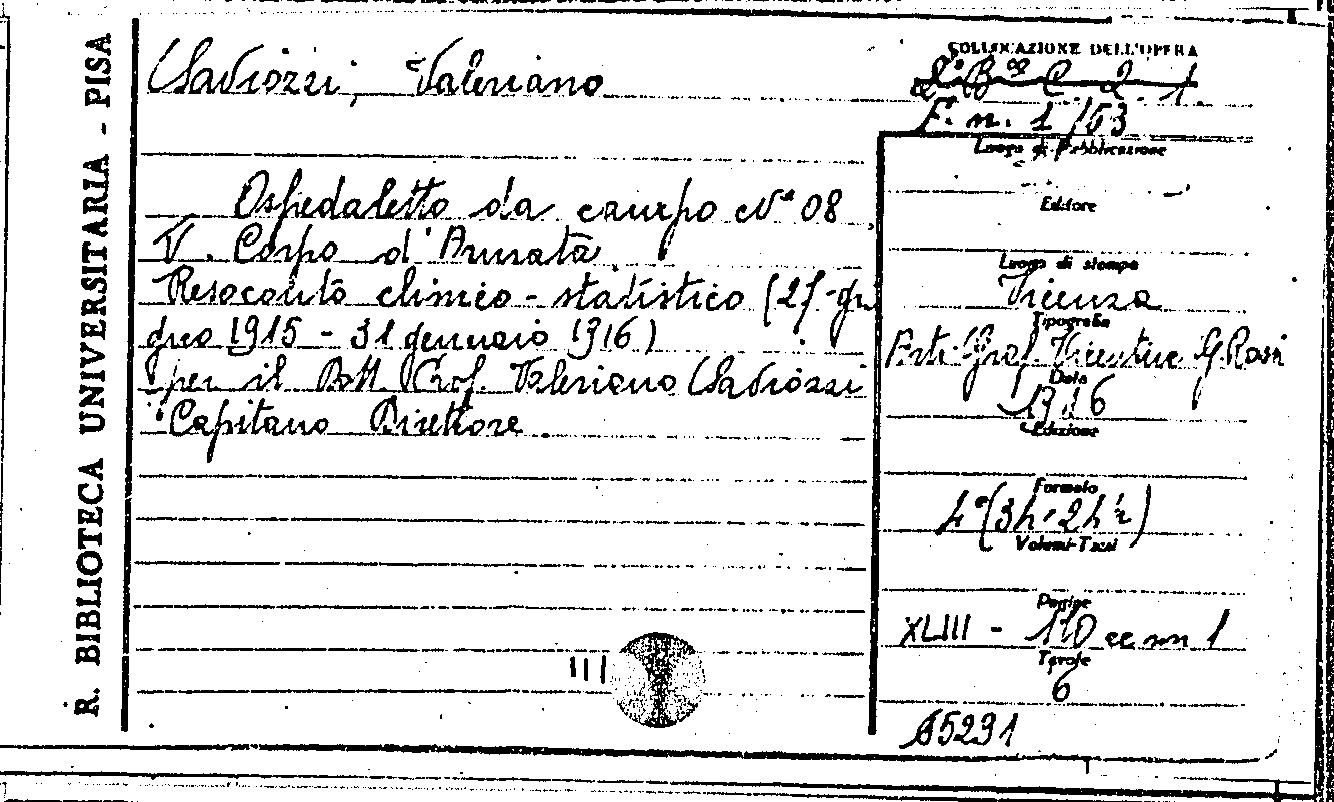 R. BIBLIOTECA UNIVERSITARIA - PISA
Saviozzi, Valeriano
Ospedaletto da campo N° 08
V. Corpo d'Armata
Resoconto clinico-statistico (25-giu
gno 1915 - 31 gennaio 1916)
per il Dott. Prof. Valeriano Saviozzi
Capitano Direttore.
COLLOCAZIONE DELL'OPERA
F. n. 1/53
Luogo di Pubblicazione
Editore
Luogo di stampa
Vicenza
Tipografia
Arti Graf. Vicentine G. Rossi
Data
1916
Edizione
Formato
Volumi-Tomi
Pagine
XLIII - 110 cc nn 1
Tavole
6
65291